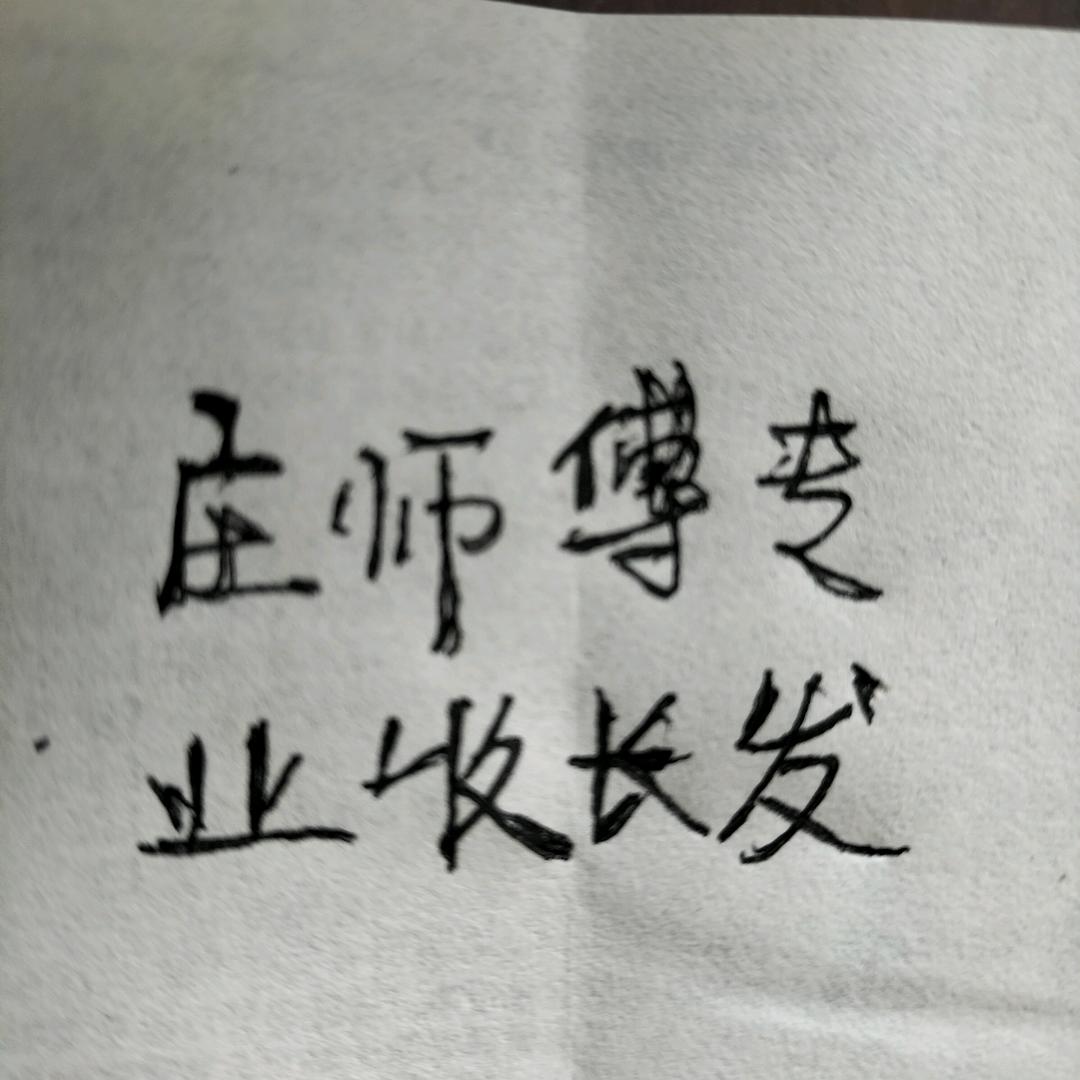 庄师傅专
业收长发